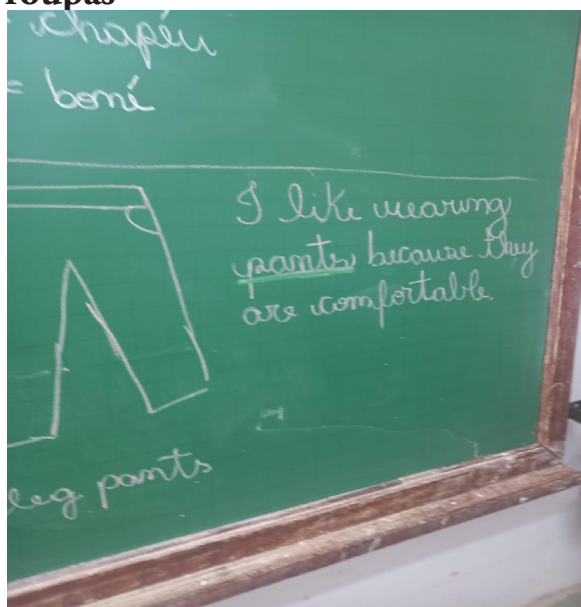 roupas
chapéu
= boné
I like wearing
pants because they
are comfortable.
leg pants